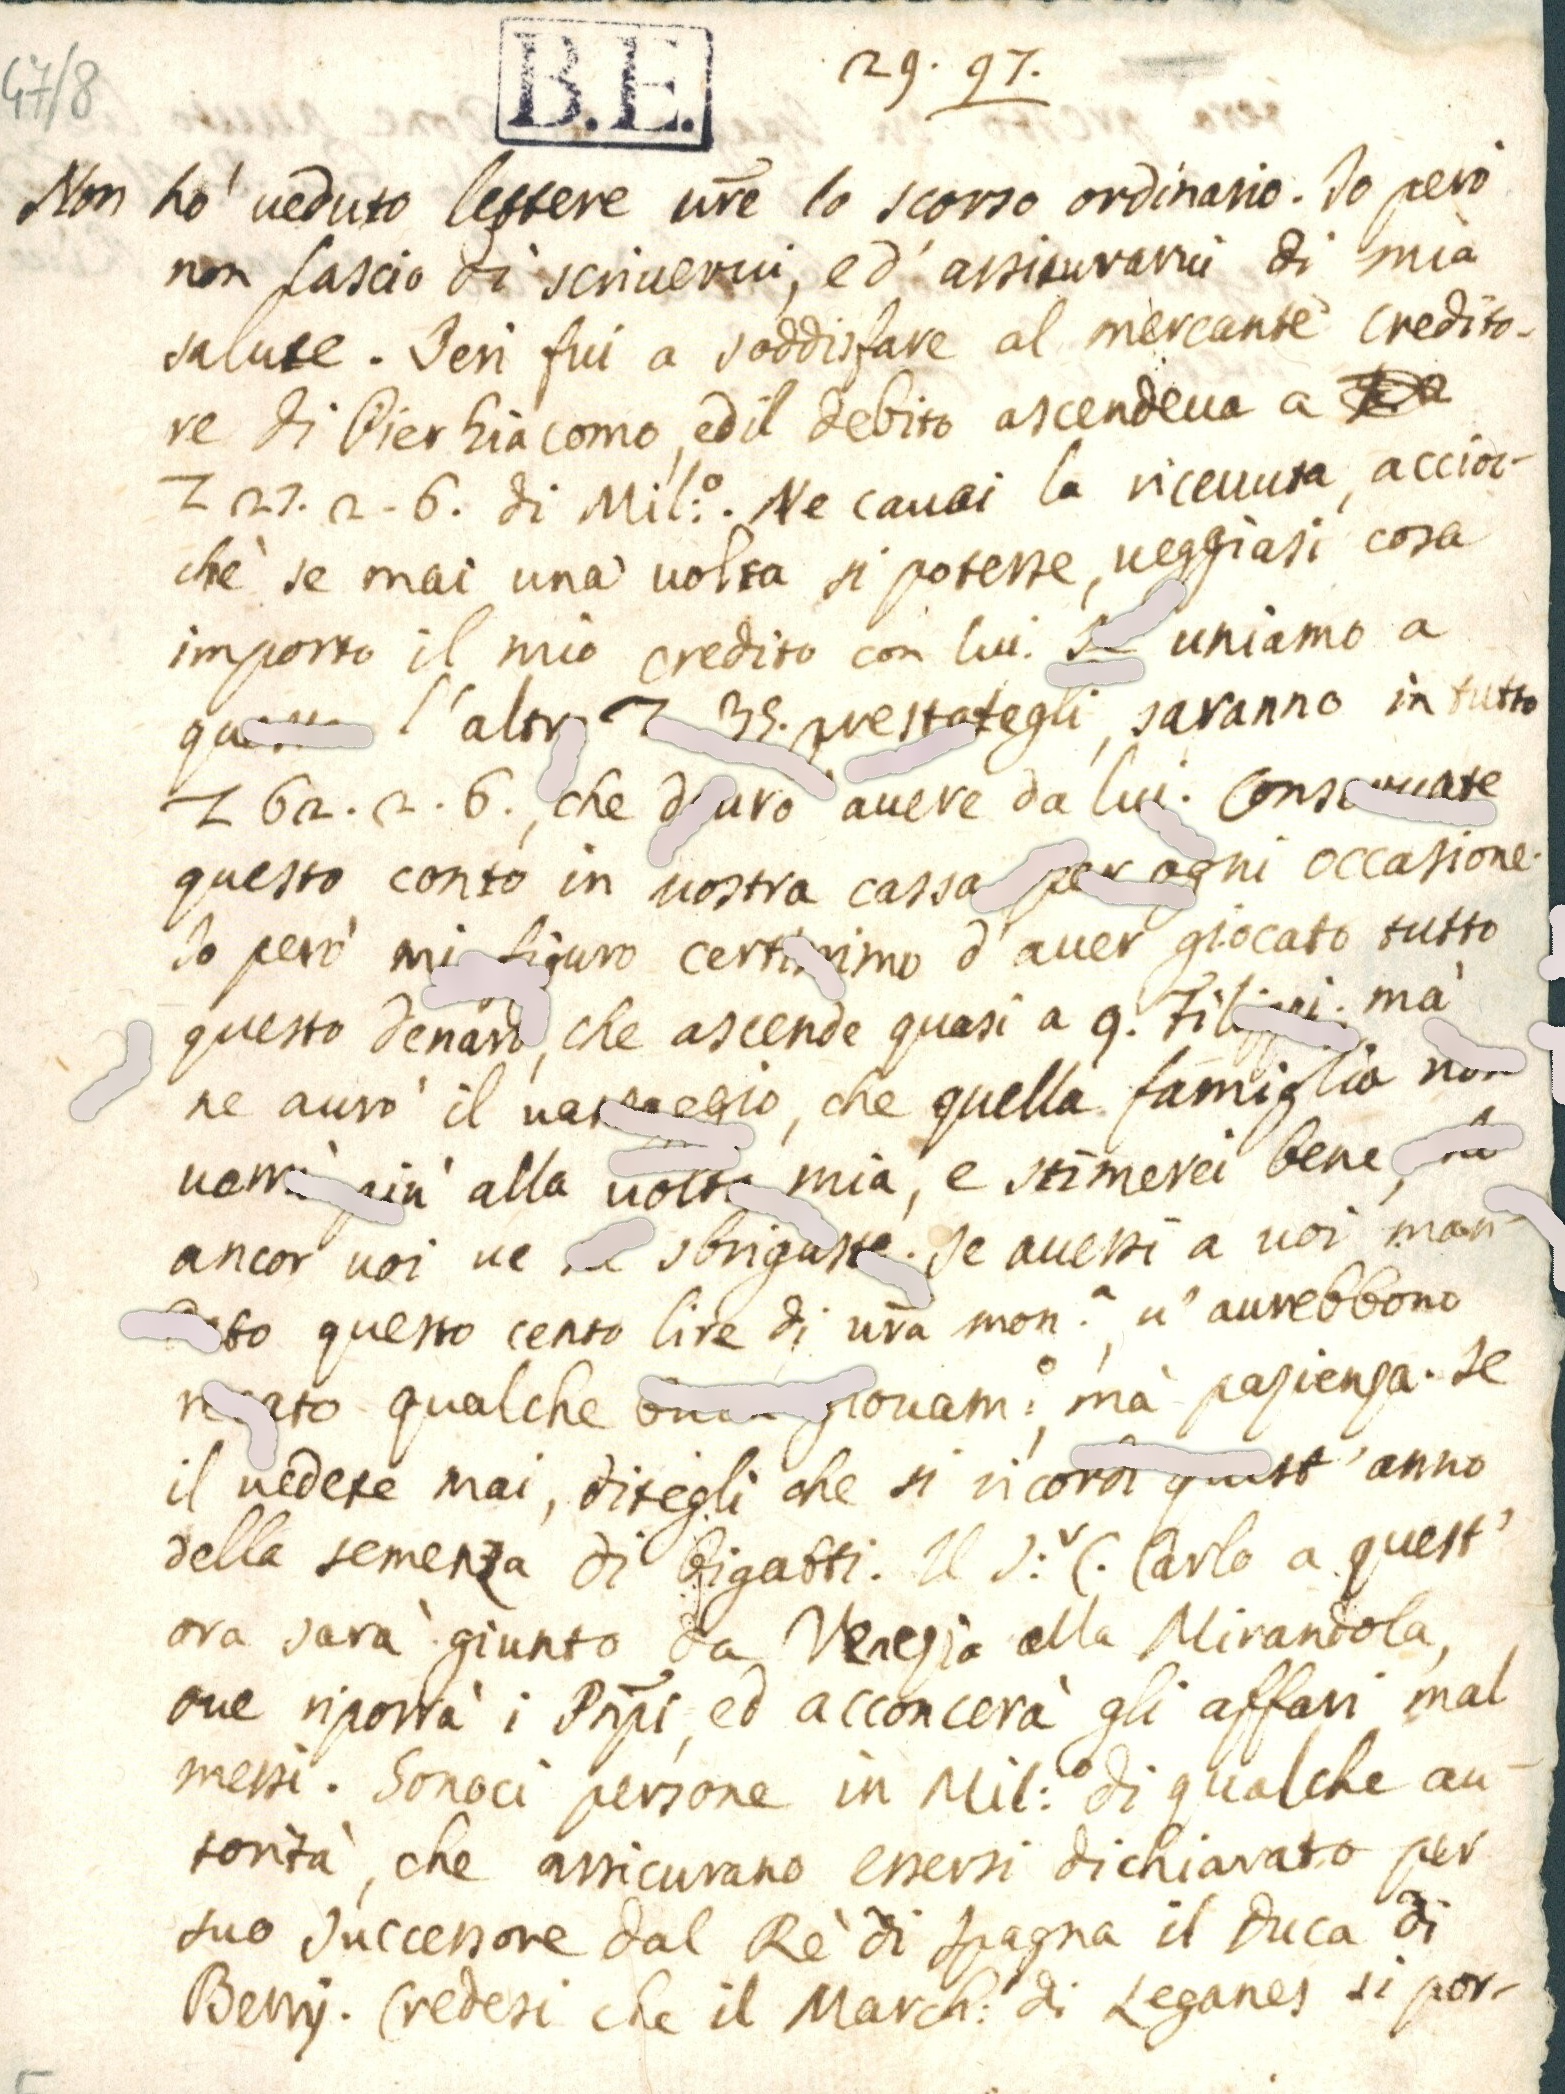 47/8
B.E.
29. 97.
Non hò ueduto lettere ure lo scorso ordinario. Io però
non lascio di scriuerui, ed assicurarui di mia
salute. Ieri fui a soddisfare al mercante credito-
re di Pier Giacomo, ed il debito ascendeua a
27. 2. 6. di Mil:o. Ne cauai la riceuuta, accioc-
chè se mai una uolta si potesse, ueggiasi cosa
importo il mio credito con lui. uniamo a
l'altre 35. prestategli, saranno in tutto
62. 2. 6., che dourò auere da lui. Conseruate
questo conto in uostra cassa per ogni occasione.
Io però mi figuro certissimo d'auer giocato tutto
questo denaro, che ascende quasi a 9. Filippi. mà
ne aurò il uantaggio, che quella famiglia non
uerrà più alla uolta mia, e stimerei bene,
ancor uoi ue sbrigaste. Se auessi a uoi man-
questo cento lire di ura mon.a, u'aurebbono
recato qualche giouam:o, mà pazienza. Se
il uedete mai, ditegli che si ricordi quest'anno
della semenza di bigatti. Il S:r C. Carlo a quest'
ora sarà giunto da Venezia alla Mirandola,
oue riporrà i Pñpi, ed acconcerà gli affari mal
messi. Sonoci persone in Mil:o di qualche au-
torità, che assicurano essersi dichiarato per
suo Successore dal Rè di Spagna il Duca di
Berrij. Credesi che il March: di Leganes si por-